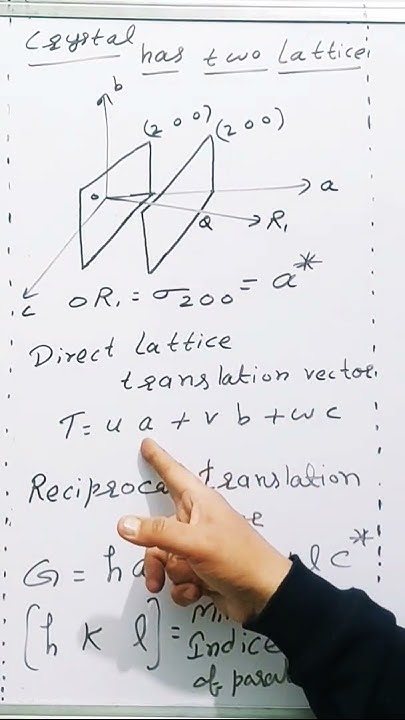 Crystal has two lattice.
b
(200) (200)
o a
Q R₁
c
OR₁ = σ₂₀₀ = a*
Direct lattice
translation vector.
T = u a + v b + w c
translation
G = h l c*
[h k l] =
Indice
of paral